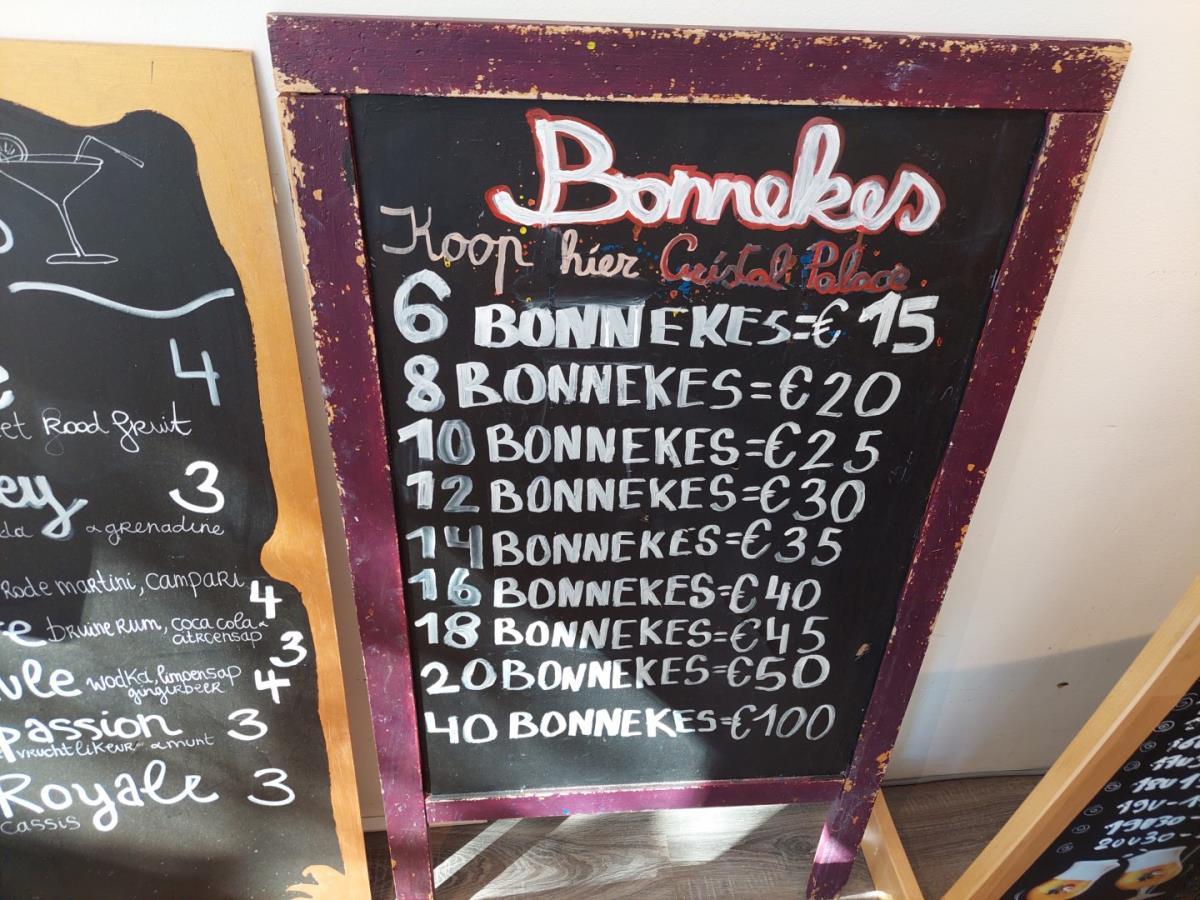 4
rood fruit
3
grenadine
Rode martini, CAMPARI 4
bruine rum, coca cola
3
wodka, limoensap 4
gingerbeer
passion 3
munt
Royale 3
cassis
Bonnekes
Koop hier Cristal Palace
6 BONNEKES=€ 15
8 BONNEKES=€20
10 BONNEKES=€25
12 BONNEKES=€30
14 BONNEKES=€35
16 BONNEKES=€40
18 BONNEKES=€45
20 BONNEKES=€50
40 BONNEKES=€100